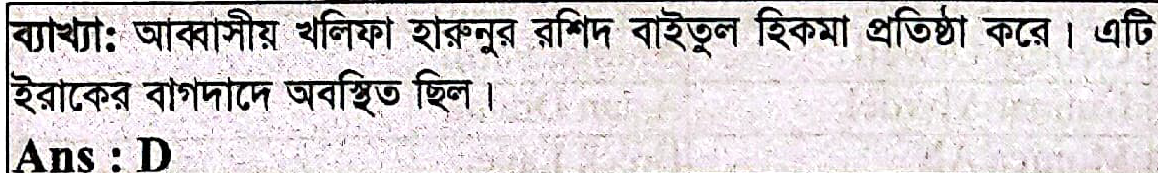 ব্যাখ্যা: আব্বাসীয় খলিফা হারুনুর রশিদ বাইতুল হিকমা প্রতিষ্ঠা করে। এটি
ইরাকের বাগদাদে অবস্থিত ছিল।
Ans : D